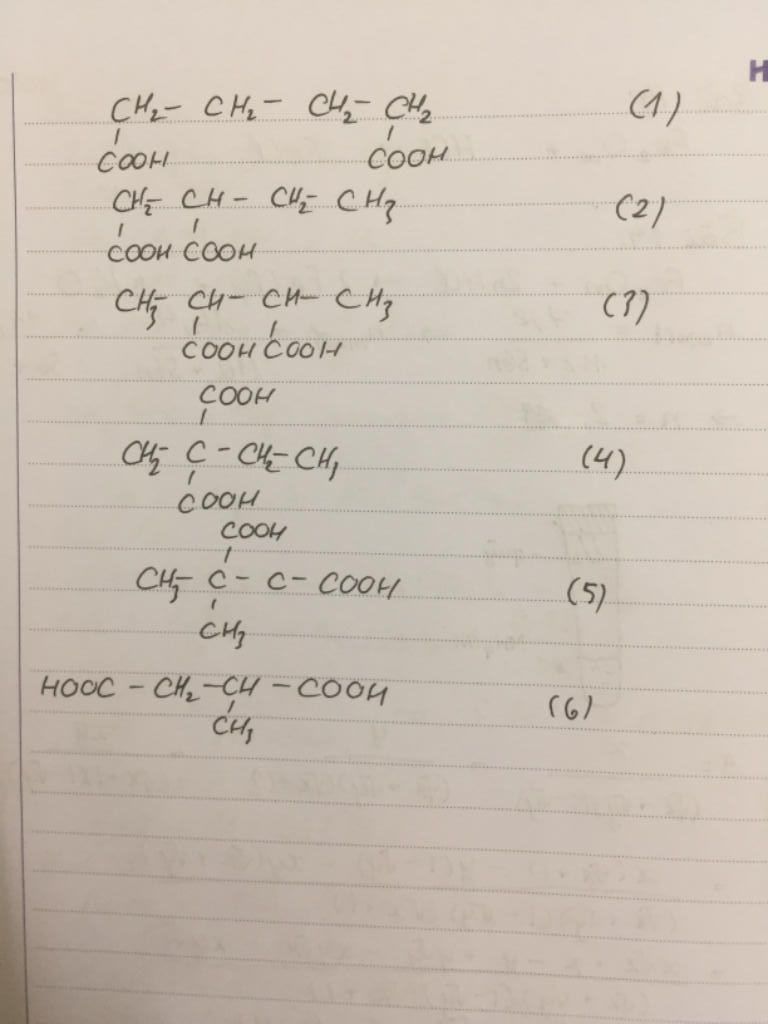 H
CH₂- CH₂- CH₂- CH₂ (1)
COOH COOH
CH₂- CH- CH₂- CH₃ (2)
COOH COOH
CH₃- CH- CH- CH₃ (3)
COOH COOH
COOH
CH₂- C - CH₂- CH₃ (4)
COOH
COOH
CH₃- C - C - COOH (5)
CH₃
HOOC - CH₂ - CH - COOH (6)
CH₃